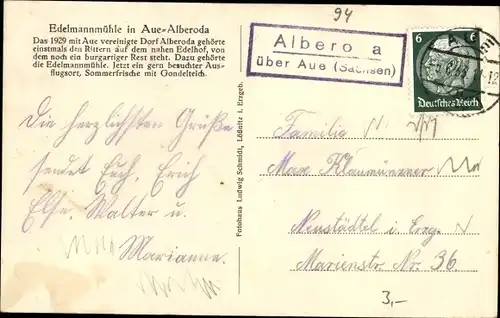 94
Edelmannmühle in Aue=Alberoda
Das 1929 mit Aue vereinigte Dorf Alberoda gehörte
einstmals den Rittern auf dem nahen Edelhof, von
dem noch ein burgartiger Rest steht. Dazu gehörte
die Edelmannmühle. Jetzt ein gern besuchter Aus=
flugsort, Sommerfrische mit Gondelteich.
Albero a
über Aue (Sachsen)
6 6
Deutsches Reich
Die herzlichsten Grüße
sendet Euch, Erich
Else, Walter u.
Marianne.
Fotohaus Ludwig Schmidt, Lößnitz i. Erzgeb.
Familie
Max Klaumünzner
Neustädtel i. Erzg.
Marienstr. Nr. 36.
3,-